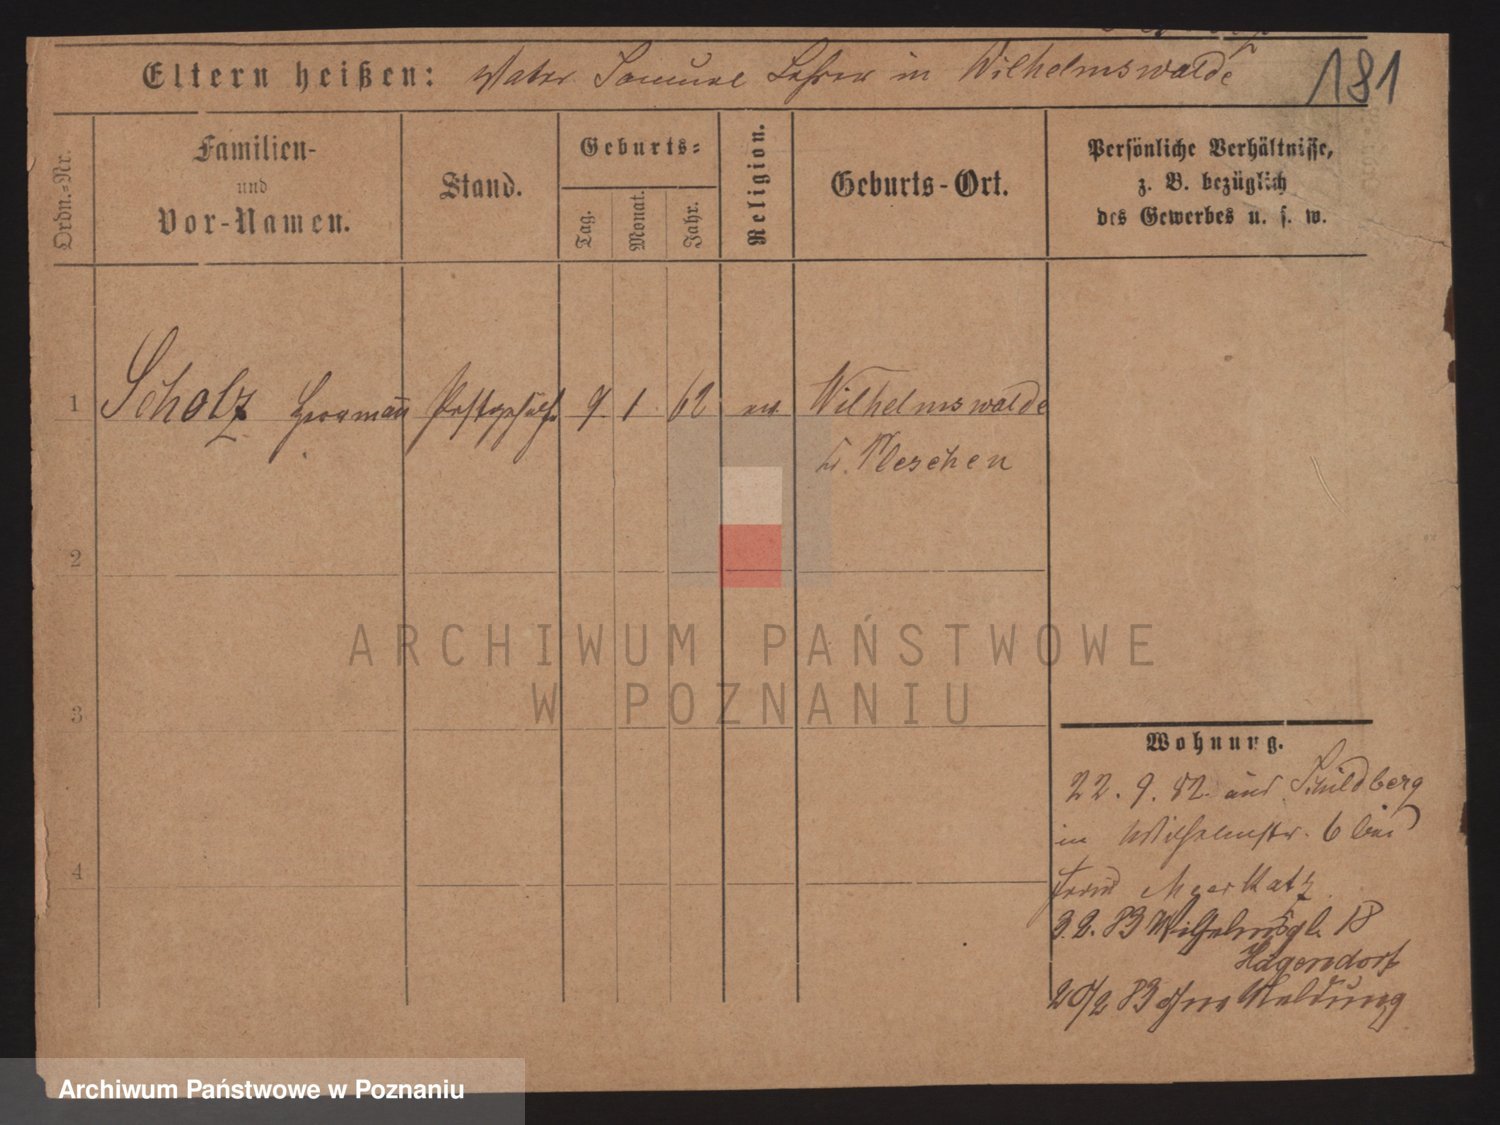 Eltern heißen: Vater Samuel Lehrer in Wilhelmswalde
181
Ordn.-Nr.
Familien-
und
Vor-Namen.
Stand.
Geburts-
Tag.
Monat.
Jahr.
Religion.
Geburts-Ort.
Persönliche Verhältnisse,
z. B. bezüglich
des Gewerbes u. s. w.
1 Scholz Herrmann Postgehülfe 9 1 62 ev. Wilhelmswalde
Kr. Pleschen
2
3
4
Wohnung.
22. 9. 82 aus Schildberg
in Wilhelmstr. 6 bei
Meer Katz
3. 2. 83 Wilhelmspl. 18
Hagendorf
20/2 83 ohne Meldung
ARCHIWUM PAŃSTWOWE
W POZNANIU
Archiwum Państwowe w Poznaniu